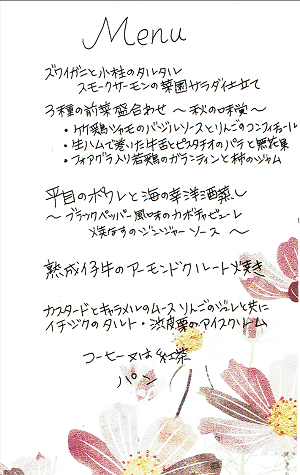 Menu
ズワイガニと小柱のタルタル
スモークサーモンの菜園サラダ仕立て
3種の前菜盛合わせ 〜 秋の味覚 〜
・竹鶏ジャモのバジルソースとりんごのコンフィチュール
・生ハムで巻いた牛舌とピスタチオのパテと無花果
・フォアグラ入り若鶏のガランティンと柿のジャム
平目のポワレと海の幸洋酒蒸し
〜 ブラックペッパー風味のカボチャピューレ
焼なすのジンジャーソース 〜
熟成仔牛のアーモンドクルート焼き
カスタードとキャラメルのムース りんごのジュレと共に
イチジクのタルト・渋皮栗のアイスクリーム
コーヒー又は紅茶
パン